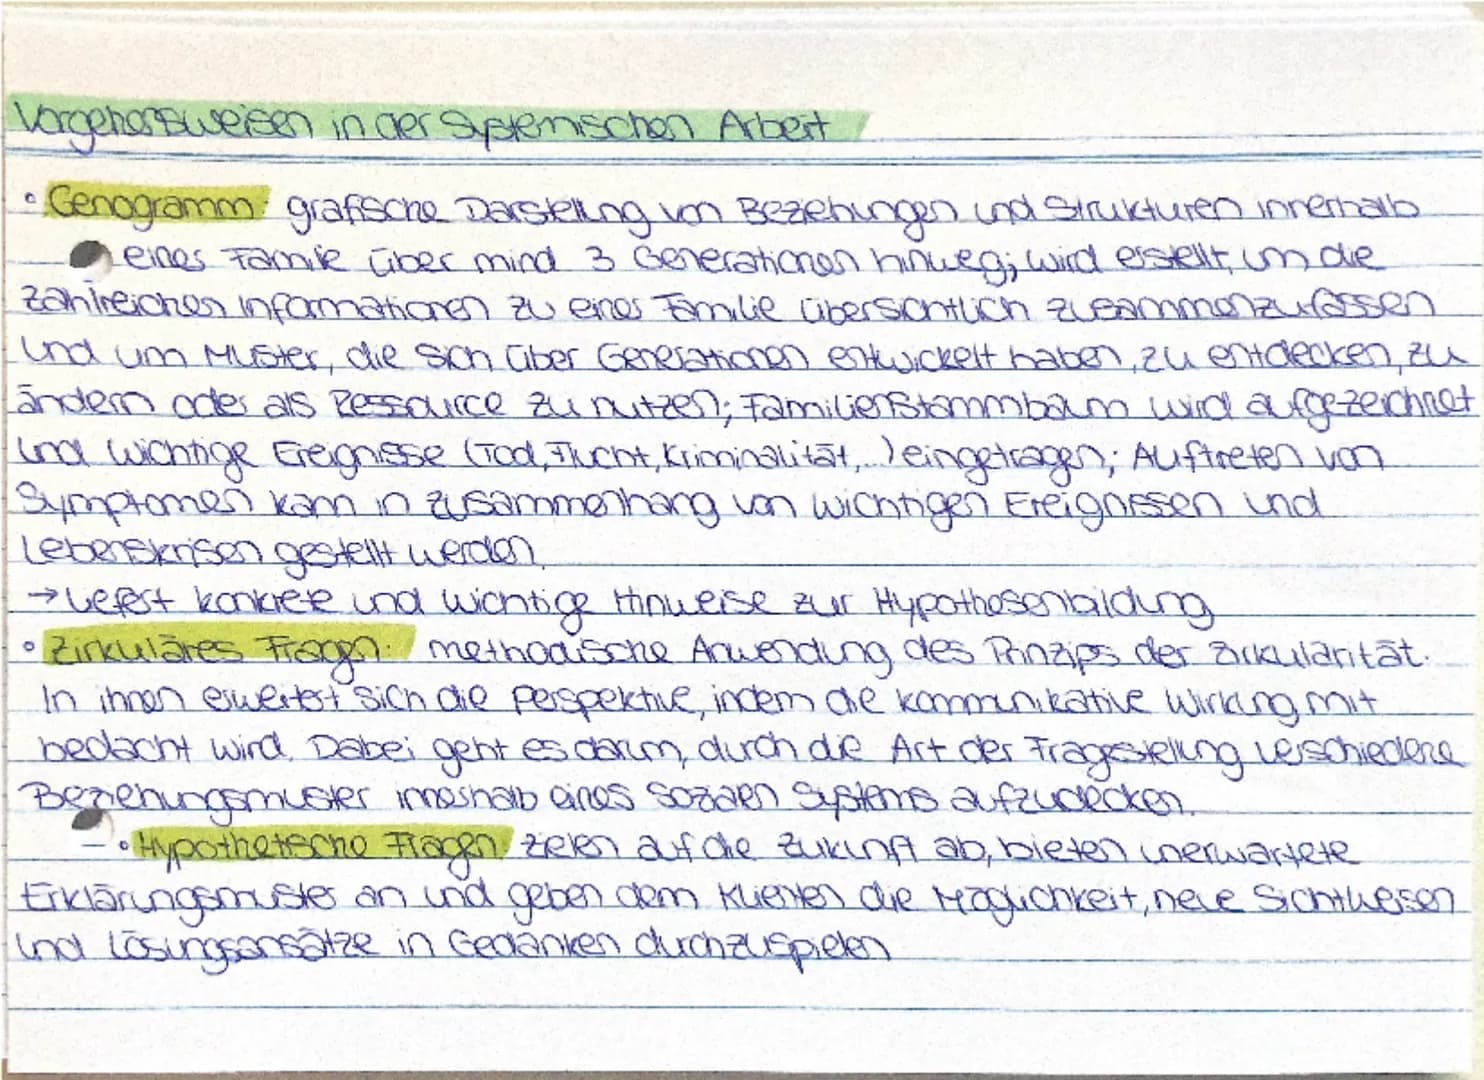 Vorgehensweisen in der Systemischen Arbeit
• Genogramm: grafische Darstellung von Beziehungen und Strukturen innerhalb
einer Familie über mind 3 Generationen hinweg; wird erstellt, um die
zahlreichen Informationen zu einer Familie übersichtlich zusammenzufassen
und um Muster, die sich über Generationen entwickelt haben, zu entdecken, zu
ändern oder als Ressource zu nutzen; Familienstammbaum wird aufgezeichnet
und wichtige Ereignisse (Tod, Flucht, Kriminalität,...) eingetragen; Auftreten von
Symptomen kann in zusammenhang von wichtigen Ereignissen und
Lebenskrisen gestellt werden.
→ Liefert konkrete und wichtige Hinweise zur Hypothesenbildung
• Zirkuläres Fragen: methodische Anwendung des Prinzips der Zirkularität.
In ihnen erweitert sich die Perspektive, indem die kommunikative Wirkung mit
bedacht wird. Dabei geht es darum, durch die Art der Fragestellung verschiedene
Beziehungsmuster innerhalb eines sozialen Systems aufzudecken.
• Hypothetische Fragen: zielen auf die Zukunft ab, bieten unerwartete
Erklärungsmuster an und geben dem Klienten die Möglichkeit, neue Sichtweisen
und Lösungsansätze in Gedanken durchzuspielen